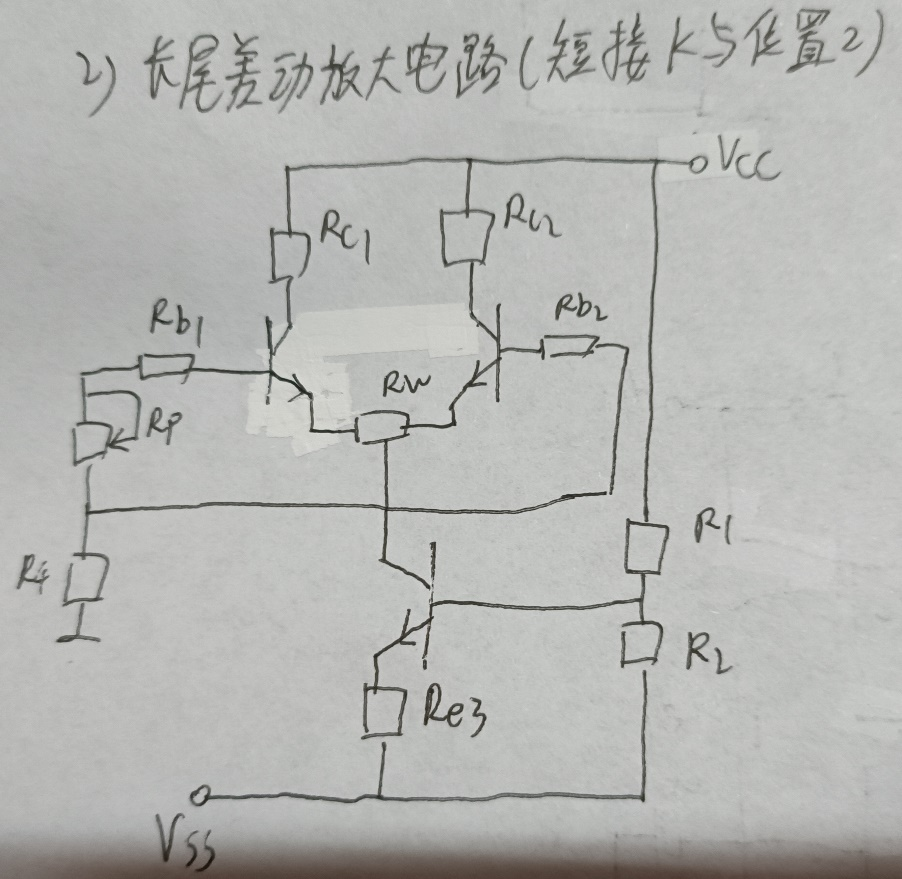 2) 长尾差动放大电路(短接K与位置2)
VCC
Rc1
Rc2
Rb1
Rb2
RW
RP
R1
R4
R2
Re3
VSS